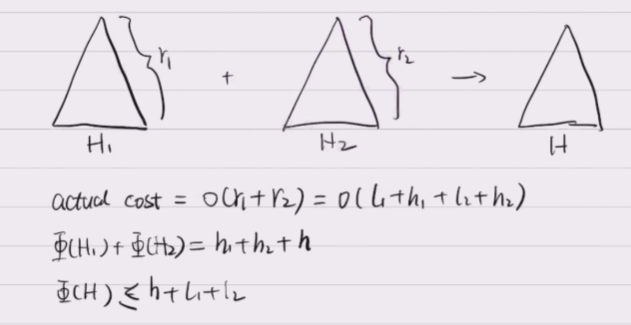 r₁ + r₂ →
H₁ H₂ H
actual cost = O(r₁+r₂) = O(l₁+h₁+l₂+h₂)
Φ(H₁)+Φ(H₂) = h₁+h₂+h
Φ(H) ≤ h+l₁+l₂